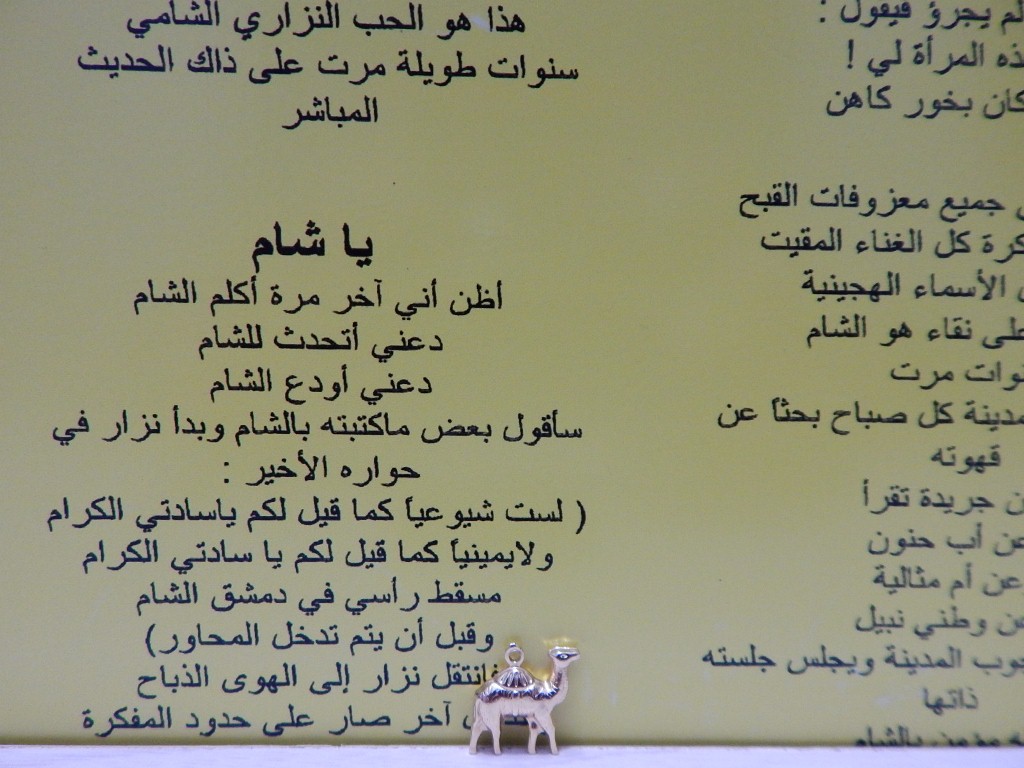 لم يجرؤ فيقول :
هذه المرأة لي !
كان بخور كاهن
جميع معزوفات القبح
كل الغناء المقيت
الأسماء الهجينية
على نقاء هو الشام
سنوات مرت
المدينة كل صباح بحثاً عن
قهوته
عن جريدة تقرأ
عن أب حنون
عن أم مثالية
عن وطني نبيل
يجوب المدينة ويجلس جلسته
ذاتها
بالشام
هذا هو الحب النزاري الشامي
سنوات طويلة مرت على ذاك الحديث
المباشر
يا شام
أظن أني آخر مرة أكلم الشام
دعني أتحدث للشام
دعني أودع الشام
سأقول بعض ماكتبته بالشام وبدأ نزار في
حواره الأخير :
( لست شيوعياً كما قيل لكم ياسادتي الكرام
ولايمينياً كما قيل لكم يا سادتي الكرام
مسقط رأسي في دمشق الشام
وقبل أن يتم تدخل المحاور)
فانتقل نزار إلى الهوى الذباح
آخر صار على حدود المفكرة